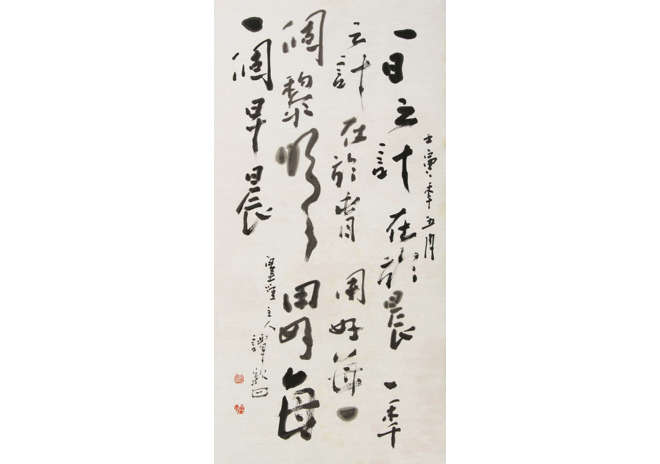 一日之計在於晨 一年
年五月
之計在於春 用好每一
個黎明 用好每
一個早晨
主人譚